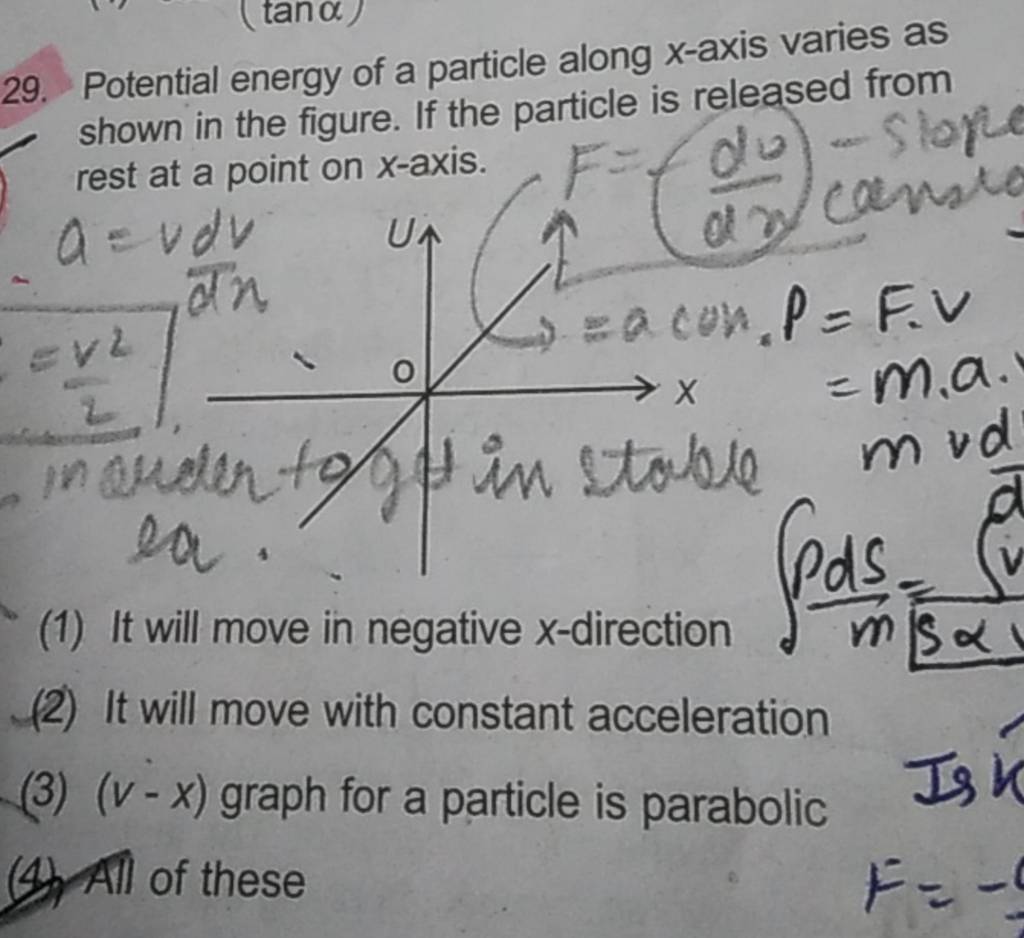 (tan α)
29. Potential energy of a particle along x-axis varies as
shown in the figure. If the particle is released from
rest at a point on x-axis.
F = - dv/dx - slope
a = v dv/dx
U
= a con. P = F.v
= v²/2
O
X
= m.a.
m vd
in order to get in stable
ea.
∫ Pds/m = ∫
S ∝
(1) It will move in negative x-direction
(2) It will move with constant acceleration
(3) (v - x) graph for a particle is parabolic
Is
(4) All of these
F = -